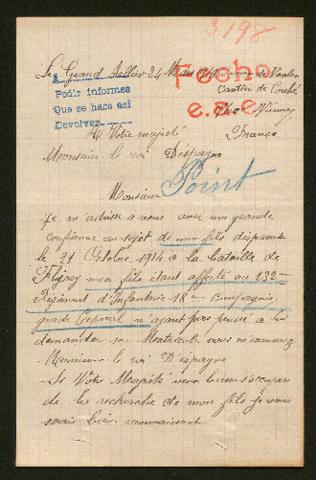 3198
Le Grand Sellier 24 Mars 1917 commune de Vaulx
Fecho
Canton de Couhé
Pedir informes
Que se hace asi
Devolver
e.s.e.
Vienne
A Votre majesté
France
Monsieur le roi Despagne
Monsieur
Point
Je m'adresse a vous avec un grande
confiance au sujet de mon fils disparu
le 21 Octobre 1914 a la bataille de
Flirey mon fils étant affecté au 232
Régiment d'Infanterie 18 Compagnie
grade Caporal n'ayant pas pensé a lui
demander son Matricule vous m'excuserez
Monsieur le roi D'espagne
Si Votre Majesté veut bien s'occuper
de la recherche de mon fils je vous
serais bien reconnaissant